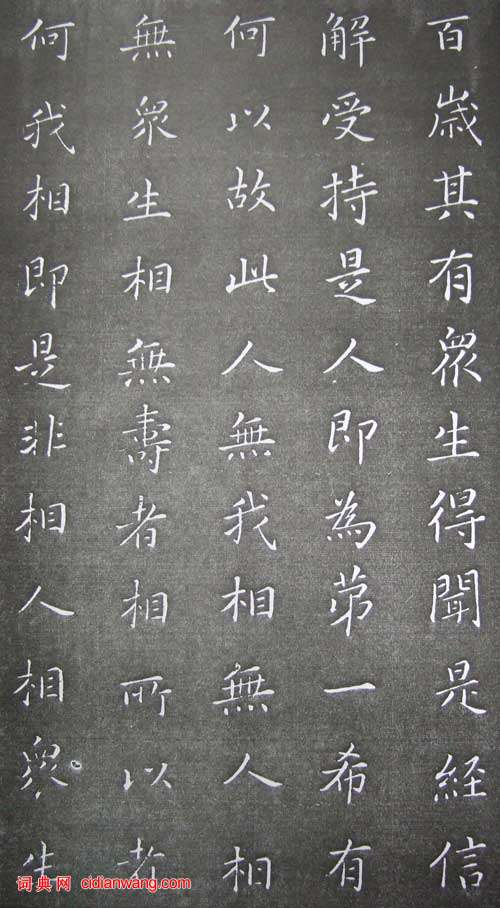 百歳其有眾生得聞是經信
解受持是人即為苐一希有
何以故此人無我相無人相
無眾生相無壽者相所以者
何我相即是非相人相眾生
词典网 cidianwang.com